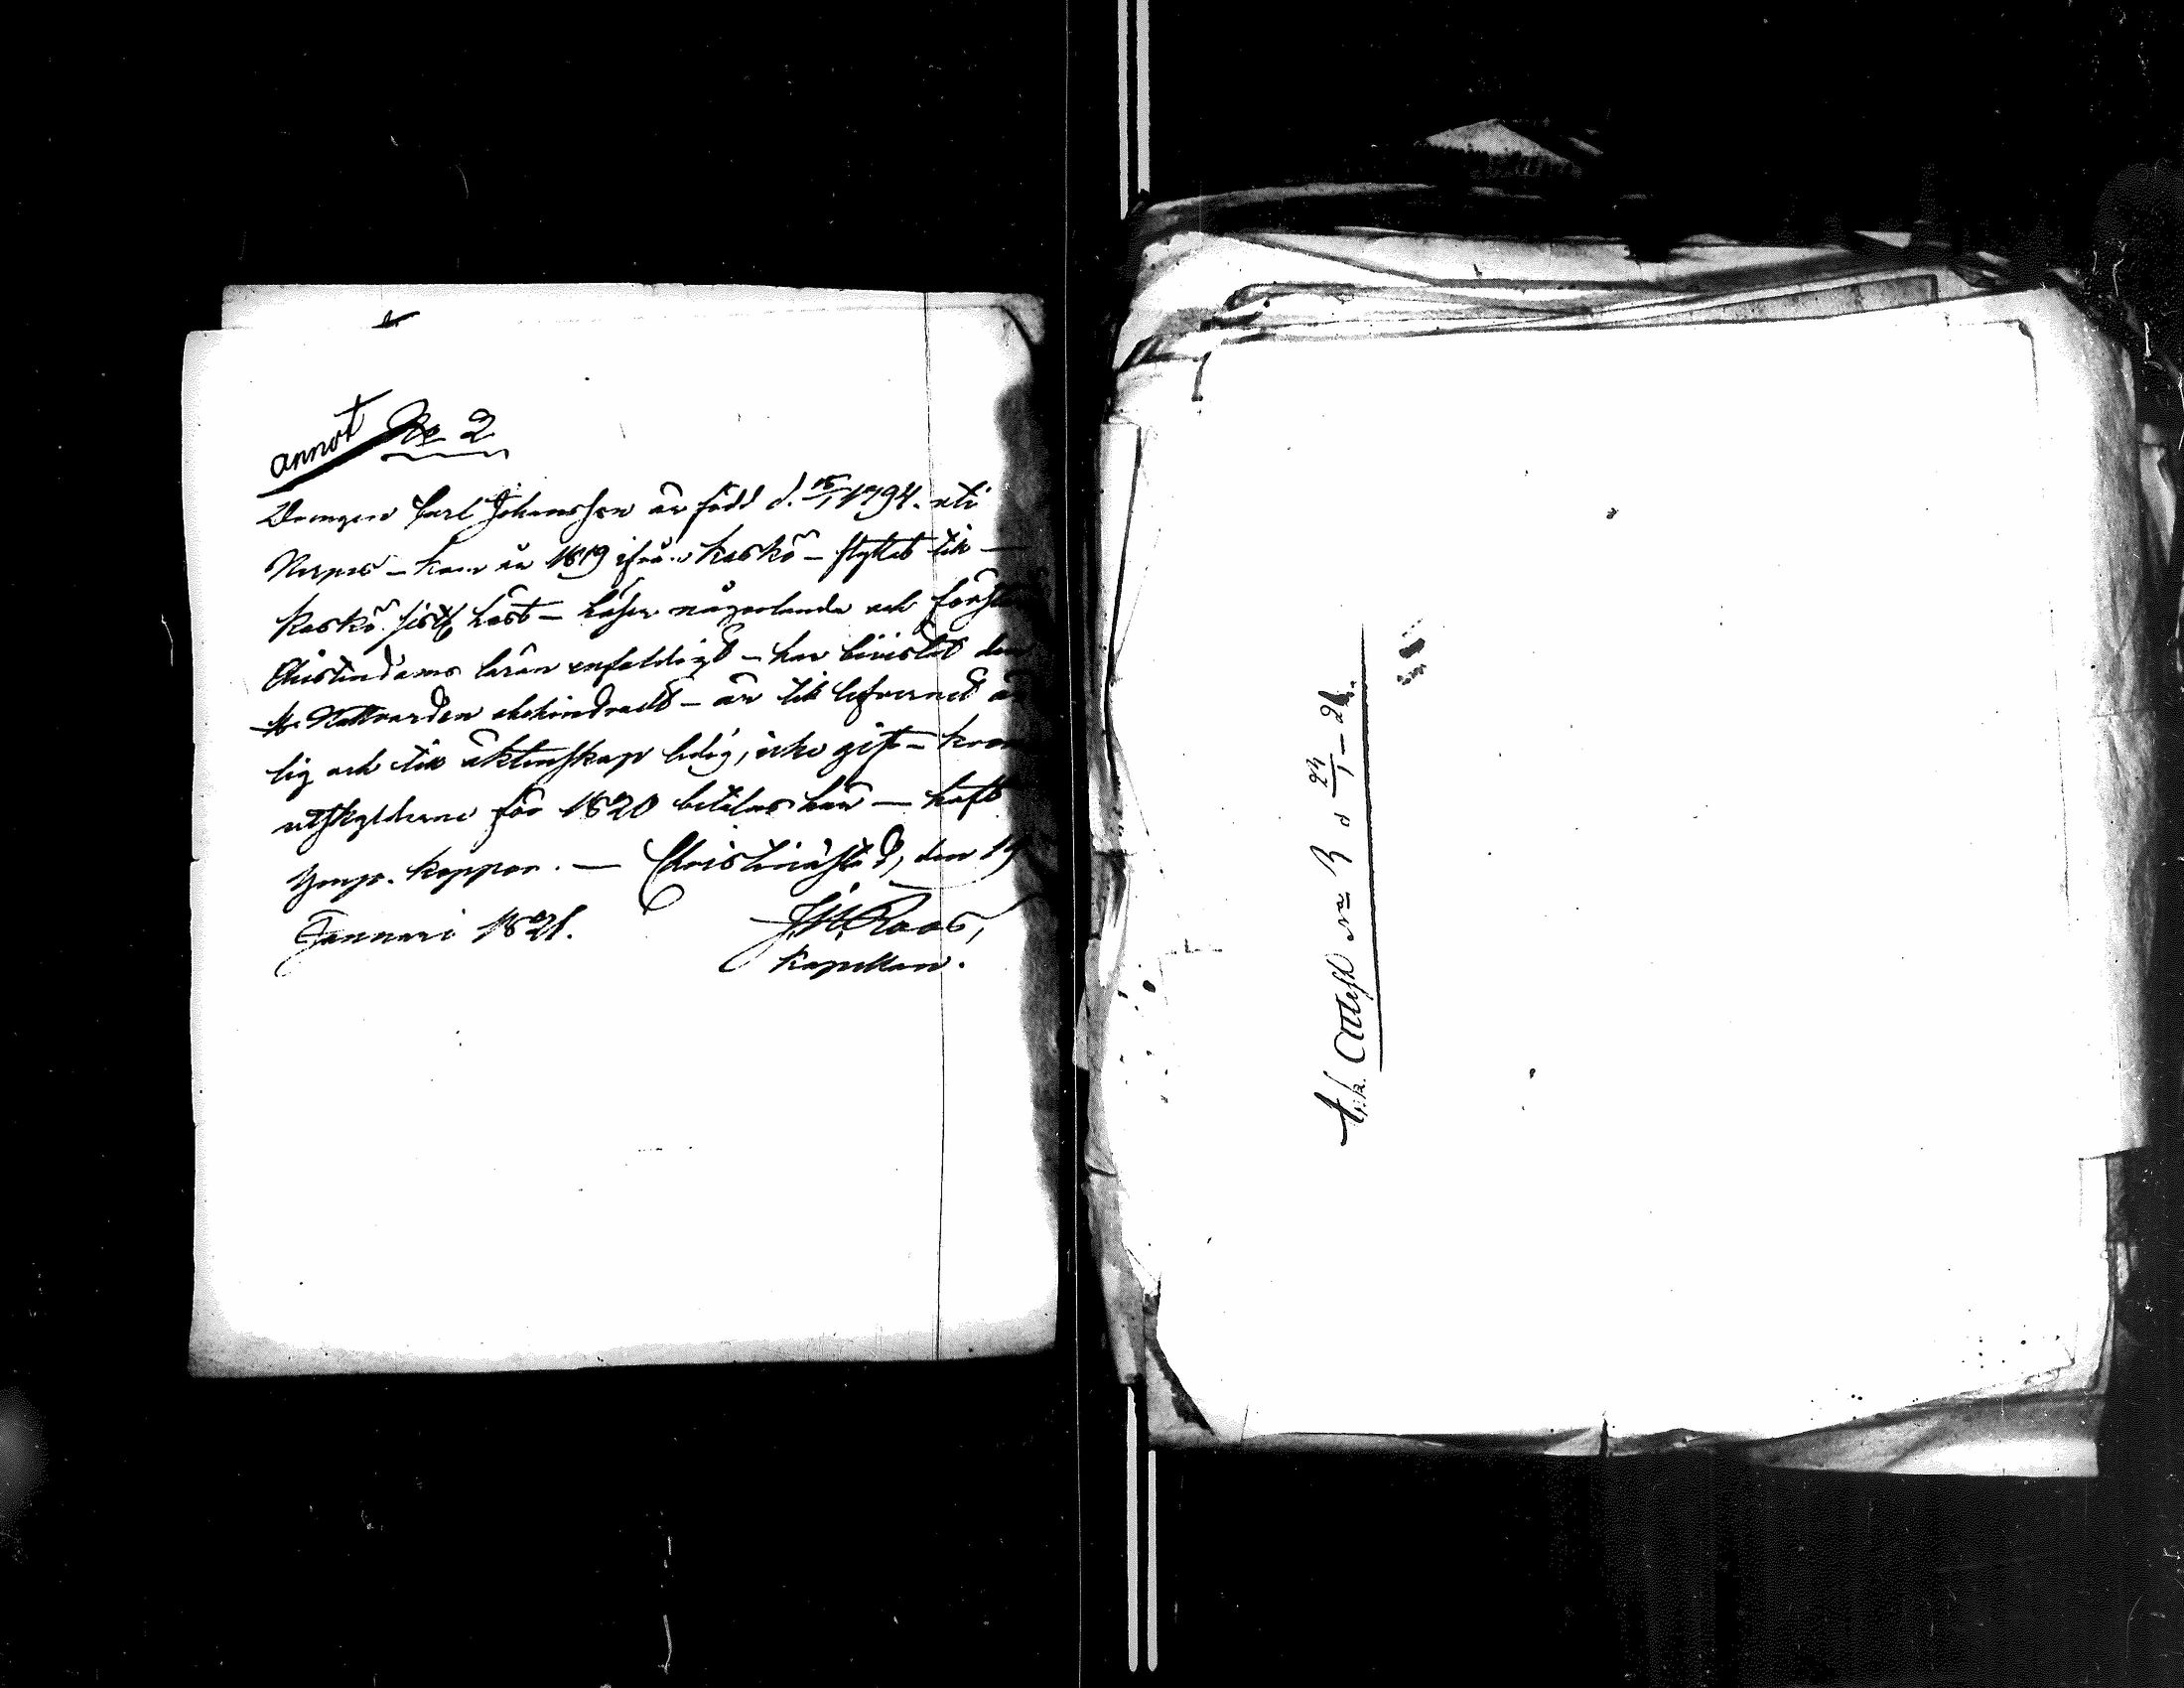 annot No 2
Drengen Carl Johansson är född d. 15/1 1794. uti
Nerpes – kom år 1819 ifrån Kaskö – flyttat till –
Kaskö sistl. höst – läser någorlunda och förstår
Christendoms läran enfaldigt – har bivistat den
H. Nattvarden obehindradt – är till lefvernet är
lig och till äktenskap ledig, icke gift – krono
utskylderne för 1820 betalas här – haft
ymp. koppor. – Christinæstad, den 19
Januari 1821. Roos,
Kapellan.
Attest No 3 d 23/1 – 21.